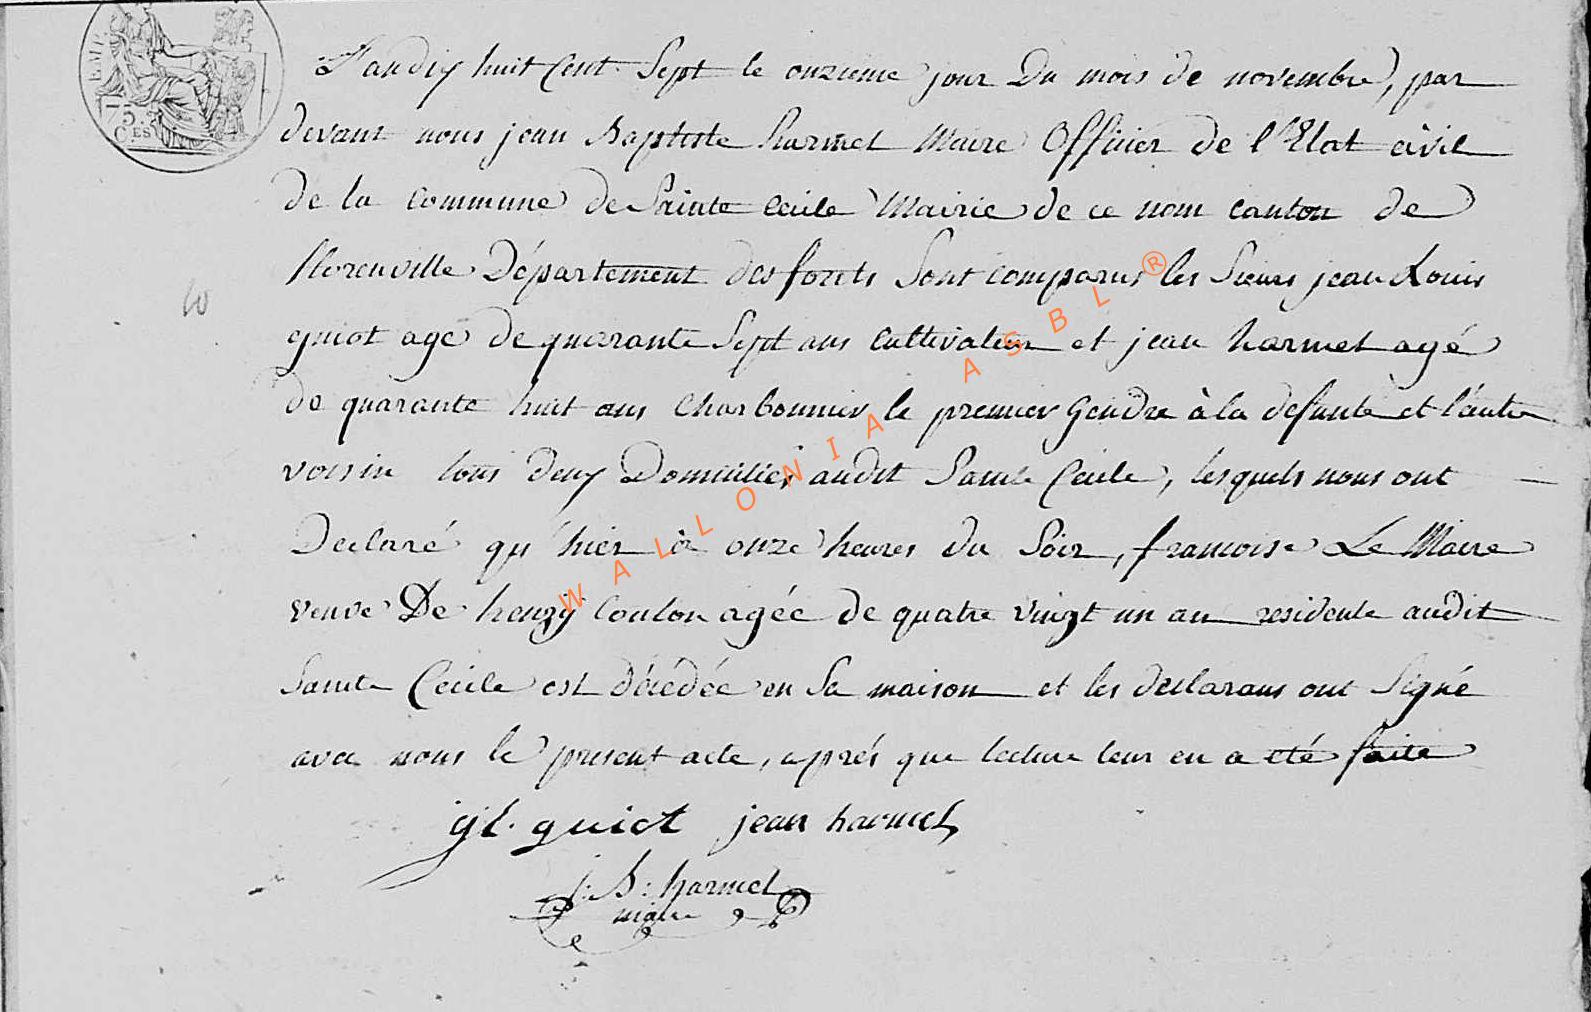 EMP
75.
CES
L'an dix huit Cent Sept le onzieme jour Du mois de novembre, par
devant nous jean Baptiste harmel Maire Officier de l'Etat civil
de la commune de Sainte Cecile Mairie de ce nom canton de
florenville Département des forets Sont comparus les Sieurs jean Louis
guiot age de quarante Sept ans Cultivateur et jean harmel agé
de quarante huit ans Charbonnier le premier Gendre à la defunte et l'autre
voisin tous deux Domiciliés audit Sainte Cecile, lesquels nous ont
Declaré qu'hier à onze heures du Soir, francoise Le Maire
veuve De henry Coulon agée de quatre vingt un an residente audit
Sainte Cecile est décédée en Sa maison et les declarans ont Signé
avec nous le present acte, aprés que lecture leur en a eté faite
gl. guiot jean harmel
J: B: harmel
maire
60
WALLONIA ASBL ®